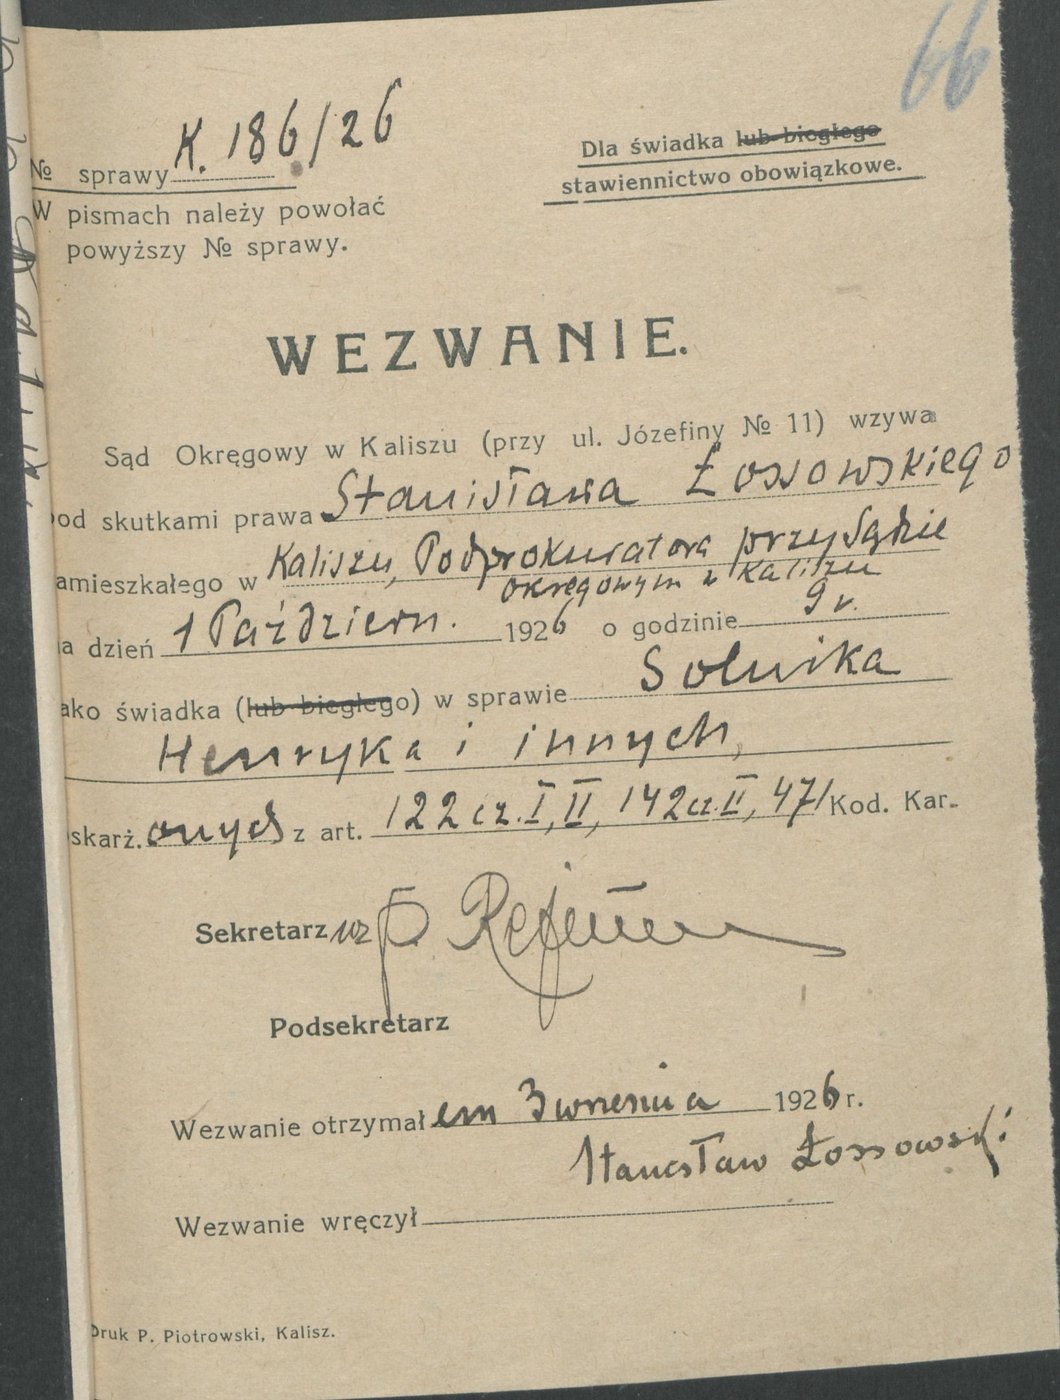 66
№ sprawy K. 186/26
Dla świadka lub biegłego
stawiennictwo obowiązkowe.
W pismach należy powołać
powyższy № sprawy.
WEZWANIE.
Sąd Okręgowy w Kaliszu (przy ul. Józefiny № 11) wzywa
pod skutkami prawa Stanisława Łossowskiego
amieszkałego w Kaliszu, Podprokuratora przy Sądzie
okręgowym w Kaliszu
na dzień 1 Październ. 1926 o godzinie 9 r.
ako świadka (lub biegłego) w sprawie Solnika
Henryka i innych,
skarż. onych z art. 122 cz. I, II, 142 cz. II, 47/ Kod. Kar.
Sekretarz wz
Podsekretarz
Wezwanie otrzymał em 3 września 1926 r.
Stanisław Łossowski
Wezwanie wręczył
Druk P. Piotrowski, Kalisz.